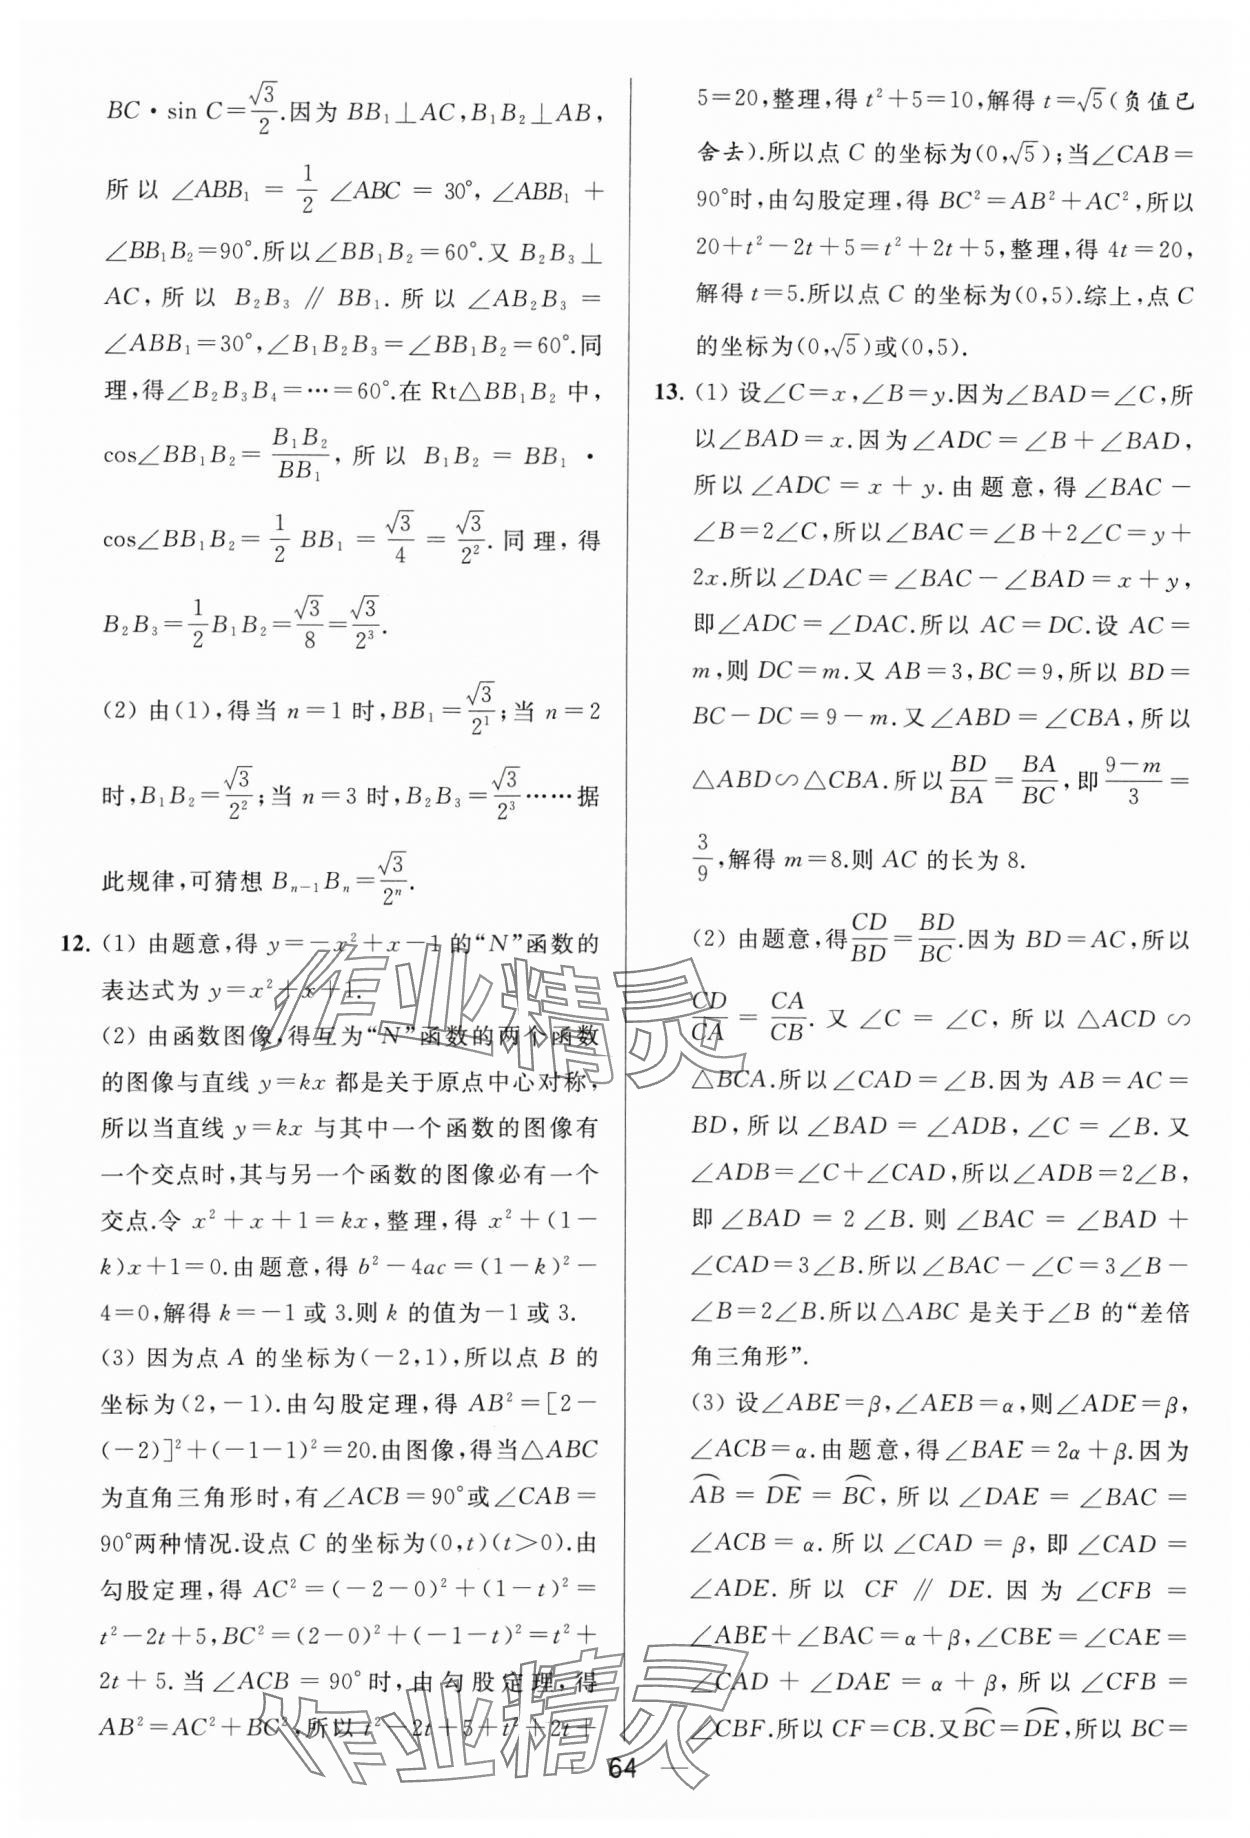 BC·sin C=√3/2.因为 BB₁⊥AC,B₁B₂⊥AB,
所以 ∠ABB₁ = 1/2 ∠ABC = 30°, ∠ABB₁ +
∠BB₁B₂=90°.所以∠BB₁B₂=60°.又 B₂B₃⊥
AC,所以 B₂B₃ ∥ BB₁.所以 ∠AB₂B₃ =
∠ABB₁=30°,∠B₁B₂B₃=∠BB₁B₂=60°.同
理,得∠B₂B₃B₄=…=60°.在 Rt△BB₁B₂ 中,
cos∠BB₁B₂=B₁B₂/BB₁,所以 B₁B₂ = BB₁ ·
cos∠BB₁B₂=1/2 BB₁ = √3/4 = √3/2².同理,得
B₂B₃=1/2B₁B₂=√3/8=√3/2³.
(2) 由(1),得当 n=1 时,BB₁=√3/2¹;当 n=2
时,B₁B₂=√3/2²;当 n=3 时,B₂B₃=√3/2³……据
此规律,可猜想 Bₙ₋₁Bₙ=√3/2ⁿ.
12. (1) 由题意,得 y=-x²+x-1 的“N”函数的
表达式为 y=x²+x+1.
(2) 由函数图像,得互为“N”函数的两个函数
的图像与直线 y=kx 都是关于原点中心对称,
所以当直线 y=kx 与其中一个函数的图像有
一个交点时,其与另一个函数的图像必有一个
交点.令 x²+x+1=kx,整理,得 x²+(1-
k)x+1=0.由题意,得 b²-4ac=(1-k)²-
4=0,解得 k=-1 或 3.则 k 的值为-1 或 3.
(3) 因为点 A 的坐标为(-2,1),所以点 B 的
坐标为(2,-1).由勾股定理,得 AB²=[2-
(-2)]²+(-1-1)²=20.由图像,得当△ABC
为直角三角形时,有∠ACB=90°或∠CAB=
90°两种情况.设点 C 的坐标为(0,t)(t>0).由
勾股定理,得 AC²=(-2-0)²+(1-t)²=
t²-2t+5,BC²=(2-0)²+(-1-t)²=t²+
2t+5.当 ∠ACB = 90°时,由勾股定理,得
AB²=AC²+BC²,所以 t²-2t+5+t²+2t+
5=20,整理,得 t²+5=10,解得 t=√5(负值已
舍去).所以点 C 的坐标为(0,√5);当∠CAB=
90°时,由勾股定理,得 BC²=AB²+AC²,所以
20+t²-2t+5=t²+2t+5,整理,得 4t=20,
解得 t=5.所以点 C 的坐标为(0,5).综上,点 C
的坐标为(0,√5)或(0,5).
13. (1) 设∠C=x,∠B=y.因为∠BAD=∠C,所
以∠BAD=x.因为∠ADC=∠B+∠BAD,
所以∠ADC=x+y.由题意,得∠BAC-
∠B=2∠C,所以∠BAC=∠B+2∠C=y+
2x.所以∠DAC=∠BAC-∠BAD=x+y,
即∠ADC=∠DAC.所以 AC=DC.设 AC=
m,则 DC=m.又 AB=3,BC=9,所以 BD=
BC-DC=9-m.又∠ABD=∠CBA,所以
△ABD∽△CBA.所以BD/BA=BA/BC,即(9-m)/3=
3/9,解得 m=8.则 AC 的长为 8.
(2) 由题意,得CD/BD=BD/BC.因为 BD=AC,所以
CD/CA = CA/CB.又 ∠C = ∠C,所以 △ACD ∽
△BCA.所以∠CAD=∠B.因为 AB=AC=
BD,所以∠BAD=∠ADB,∠C=∠B.又
∠ADB=∠C+∠CAD,所以∠ADB=2∠B,
即∠BAD = 2∠B.则 ∠BAC = ∠BAD +
∠CAD=3∠B.所以∠BAC-∠C=3∠B-
∠B=2∠B.所以△ABC 是关于∠B 的“差倍
角三角形”.
(3) 设∠ABE=β,∠AEB=α,则∠ADE=β,
∠ACB=α.由题意,得∠BAE=2α+β.因为
⌒AB = ⌒DE = ⌒BC,所以∠DAE = ∠BAC =
∠ACB = α.所以∠CAD = β,即∠CAD =
∠ADE.所以 CF ∥ DE.因为 ∠CFB =
∠ABE+∠BAC=α+β,∠CBE=∠CAE=
∠CAD + ∠DAE = α + β,所以 ∠CFB =
∠CBF.所以 CF=CB.又⌒BC=⌒DE,所以 BC=
64
作业精灵
作业精灵